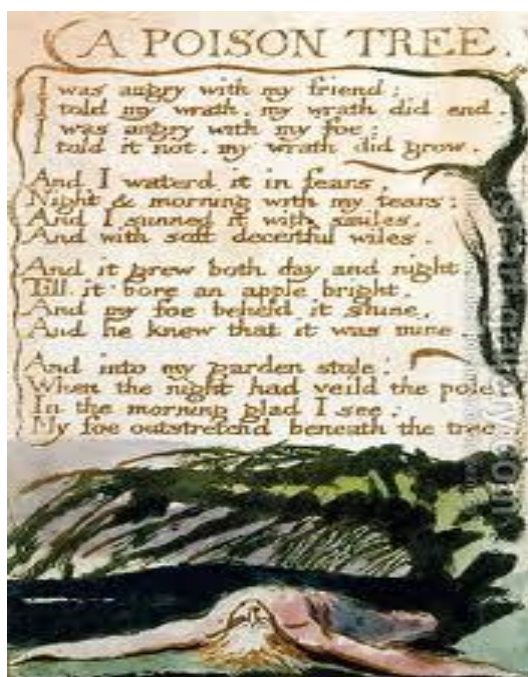 A POISON TREE.
I was angry with my friend:
I told my wrath, my wrath did end.
I was angry with my foe:
I told it not, my wrath did grow.
And I waterd it in fears,
Night & morning with my tears:
And I sunned it with smiles,
And with soft deceitful wiles.
And it grew both day and night.
Till it bore an apple bright.
And my foe beheld it shine.
And he knew that it was mine
And into my garden stole:
When the night had veild the pole
In the morning glad I see.
My foe outstretchd beneath the tree